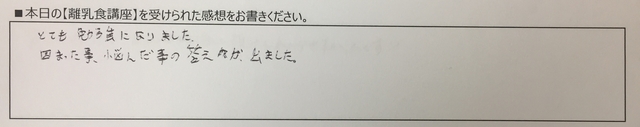 ■本日の【離乳食講座】を受けられた感想をお書きください。
とても勉強になりました。
困まった事、悩んだ事の答えなが、出ました。